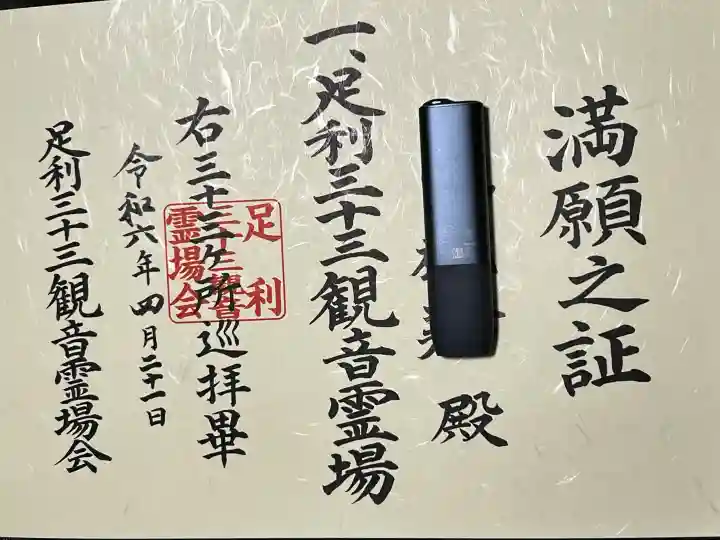 満願之証
殿
一、足利三十三観音霊場
右三十三ケ所巡拝畢
令和六年四月二十一日
足利三十三観音霊場会
足利
三十三観音
霊場会